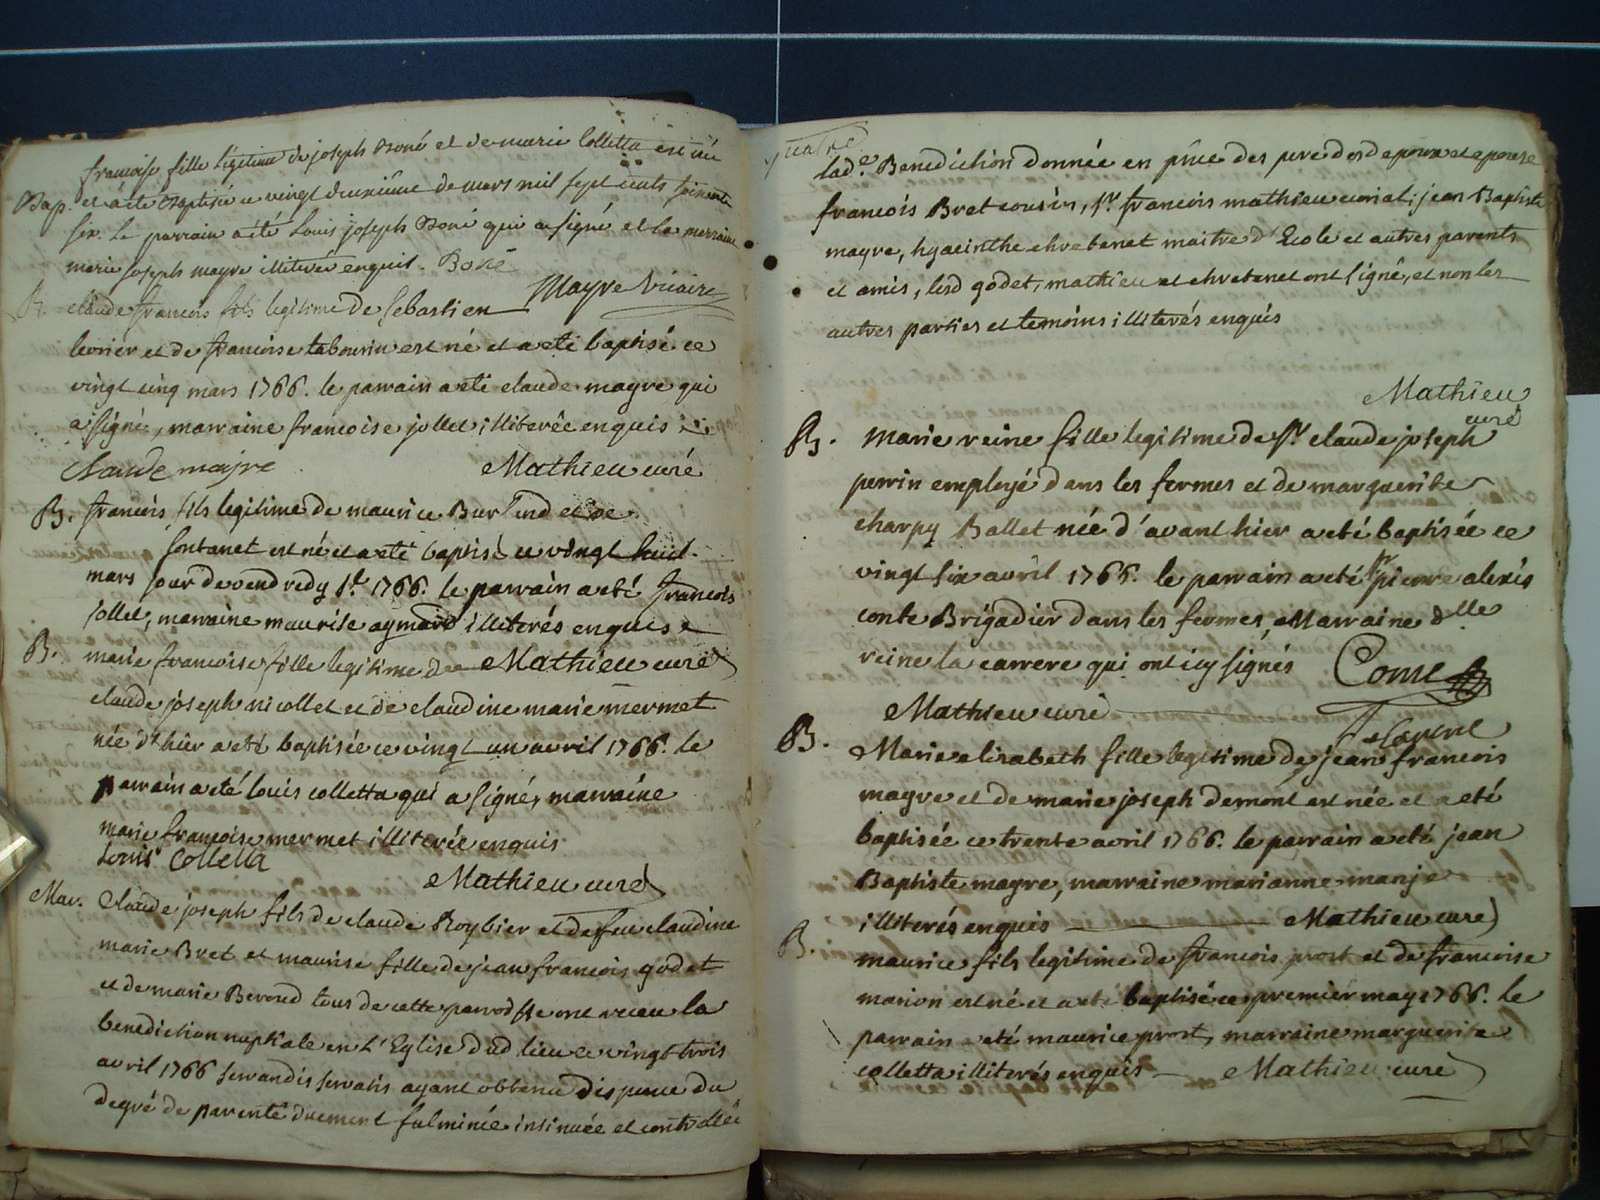 francoise fille legitime de joseph Boné et de marie Colletta est née
Bap. et a été Baptisée ce vingt deuxième de mars mil sept cents soixante
six. Le parrain a été Louis joseph Boné qui a signé et la marraine
marie joseph mayre illiterée enquis. Boné
Mayre Vicaire
B. claude francois fils legitime de sebastien
levrier et de francoise tabourin est né et a eté baptisé ce
vingt cinq mars 1766. le parrain a eté claude mayre qui
a signé, marraine francoise jollet illiterée enquis
Claude majre Mathieu curé
B. francois fils legitime de maurice Burlind et de
fontanet est né et a eté baptisé ce vingt huit
mars jour de vendredy st. 1766. le parrain a eté francois
jollet, marraine maurise aymard illiterés enquis
B. marie francoise fille legitime de Mathieu curé
claude joseph nicollet et de claudine marie mermet
née d'hier a eté baptisée ce vingt un avril 1766. le
parrain a eté louis colletta qui a signé, marraine
marie francoise mermet illiterée enquis
Louis Colletta
Mathieu curé
Mar. Claude joseph fils de claude Roybier et de feu claudine
marie Bret et maurise fille de jean francois godet
et de marie Beroud tous de cette parroisse ont receu la
benediction nuptiale en l'Eglise dud lieu ce vingt trois
avril 1766 servandis servatis ayant obtenu dispense du
degré de parenté duement fulminée insinuée et controllée
lad.e Benediction donnée en pñce des pere de epoux et epouse
francois Bret cousin, sr. francois mathieu curial, jean Baptiste
mayre, hyacinthe chrebanet maitre d'Ecole et autres parents
et amis, lesd godet, mathieu et chrebanet ont signé, et non les
autres parties et temoins illiterés enquis
Mathieu
curé
B. Marie reine fille legitime de sr. claude joseph
perrin employé dans les fermes et de marguerite
charpy Ballet née d'avant hier a eté baptisée ce
vingt six avril 1766. le parrain a eté sr. pierre alexis
conte Brigadier dans les fermes, Marraine dlle
reine la carrere qui ont icy signés Conte
Mathieu curé
B. Marie elisabeth fille legitime de jean francois
mayre et de marie joseph demont est née et a eté
baptisée ce trente avril 1766. le parrain a eté jean
Baptiste mayre, marraine marianne manje
illiterés enquis Mathieu curé
B. maurice fils legitime de francois prost et de francoise
manon est né et a eté baptisé ce premier may 1766. le
parrain a eté maurice prost, marraine marguerite
colletta illiterés enquis Mathieu curé